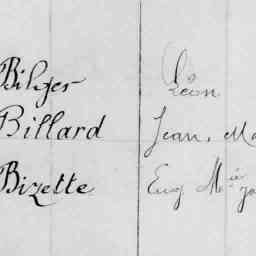 Bilger Léon
Billard Jean, Ma
Bizette Eug. Mie